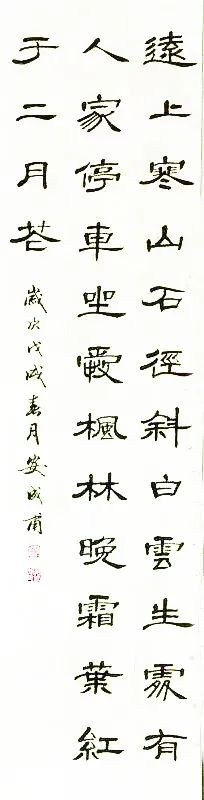 遠上寒山石徑斜白雲生處有
人家停車坐愛楓林晚霜葉紅
于二月花
歲次戊戌春月安成甫